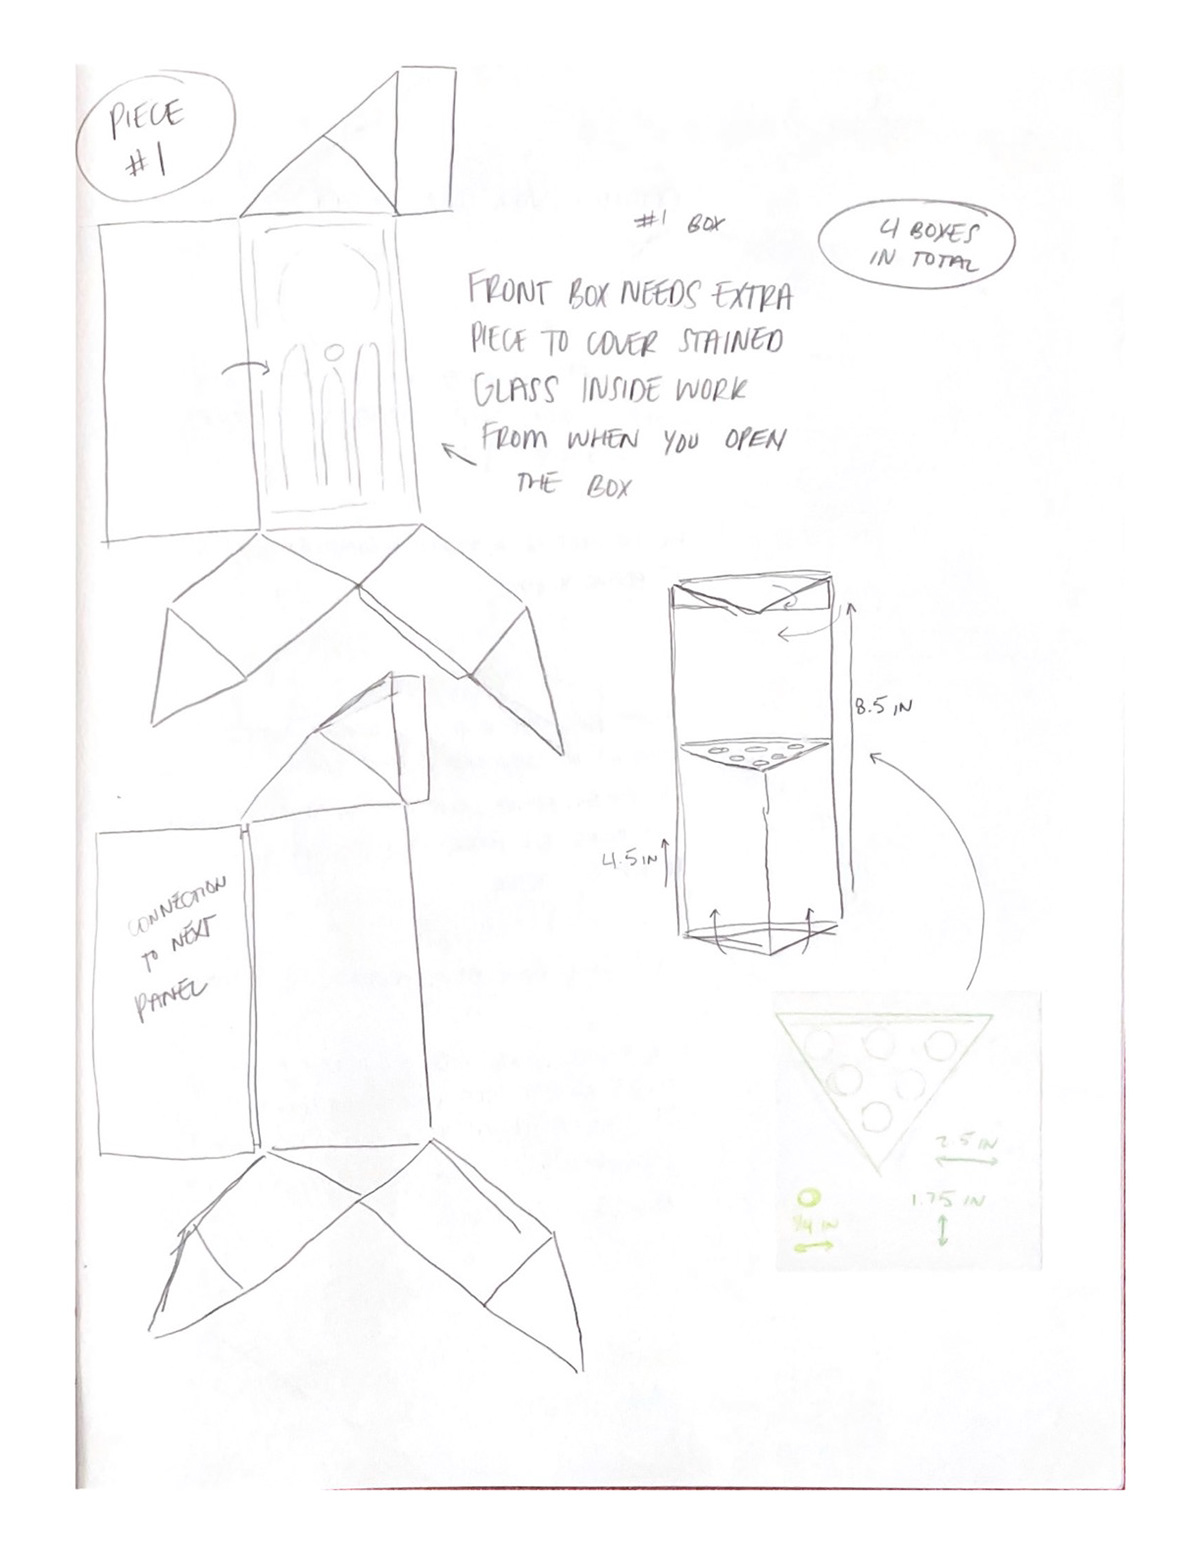 PIECE
#1
#1 BOX
4 BOXES
IN TOTAL
FRONT BOX NEEDS EXTRA
PIECE TO COVER STAINED
GLASS INSIDE WORK
FROM WHEN YOU OPEN
THE BOX
8.5 IN
4.5 IN
CONNECTION
TO NEXT
PANEL
2.5 IN
1.75 IN
3/4 IN